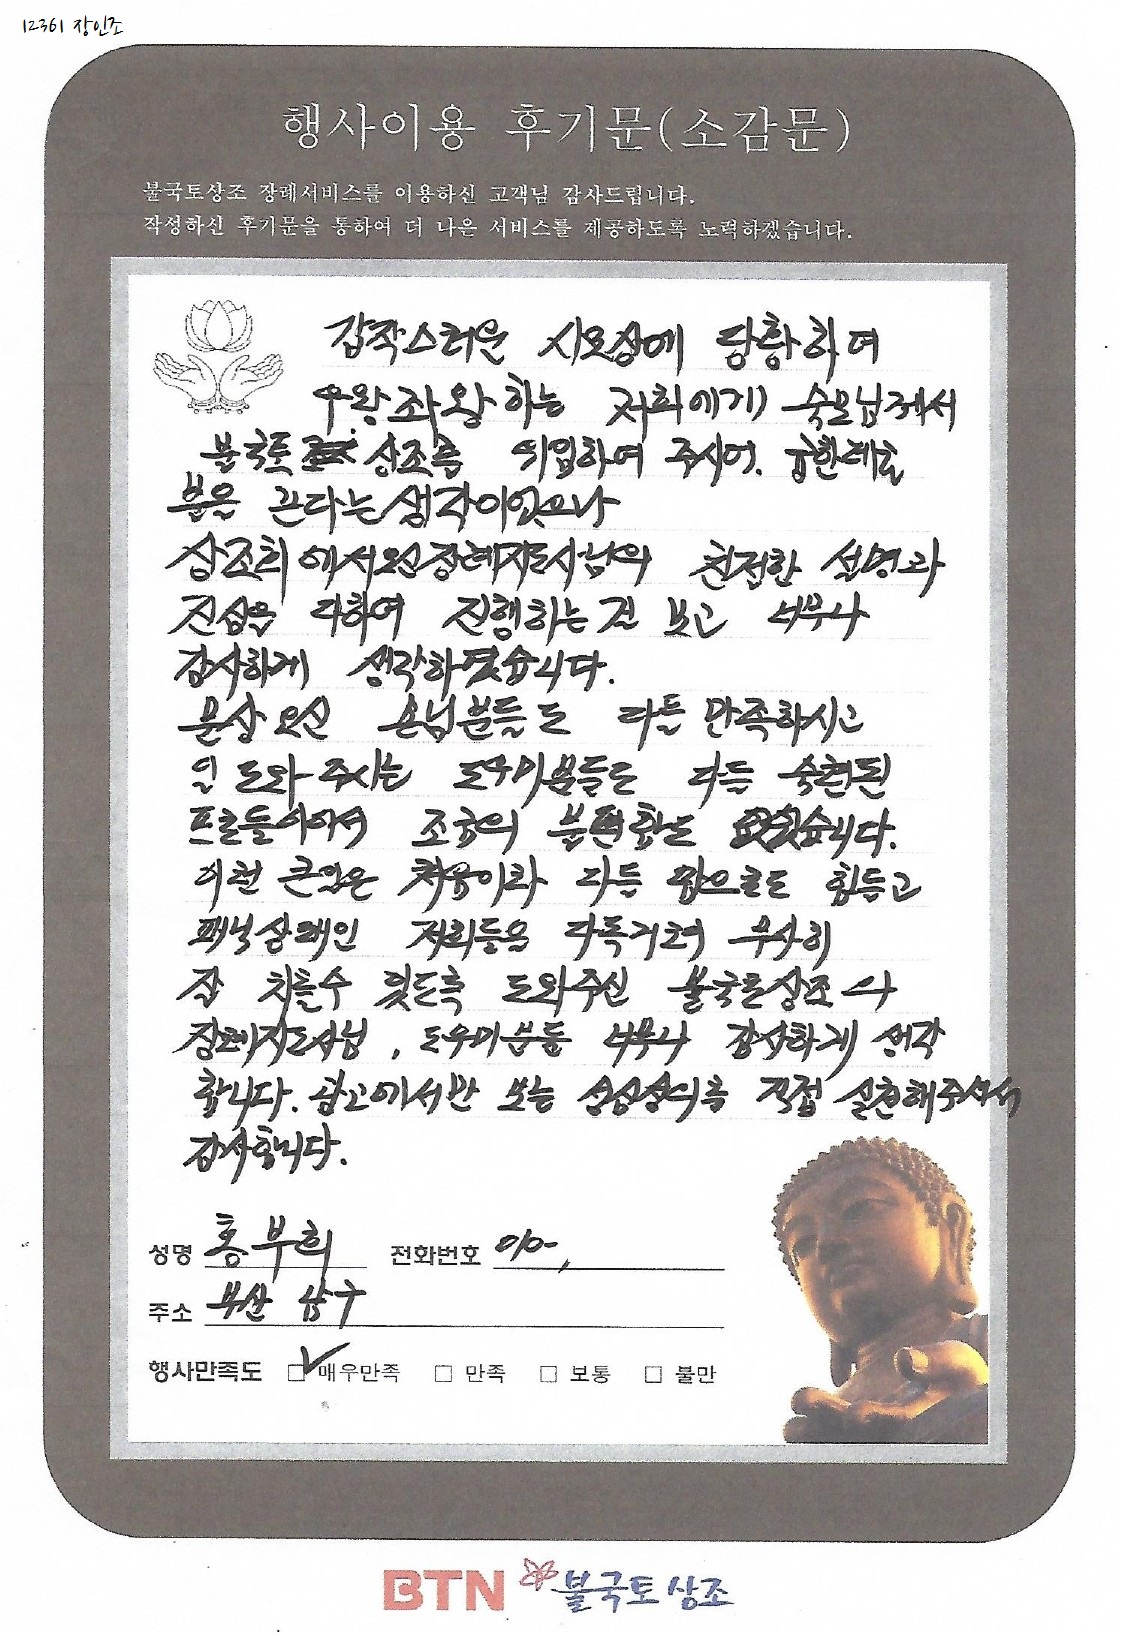 12361 장인조
행사이용 후기문(소감문)
불국토상조 장례서비스를 이용하신 고객님 감사드립니다.
작성하신 후기문을 통하여 더 나은 서비스를 제공하도록 노력하겠습니다.
갑작스러운 시모상에 당황하며
우왕좌왕하는 저희에게 숙모님께서
불국토 상조를 하여 주시어.
분을 온다는 생각이었으나
상조회에서 오신 장례지도사님의 친절한 설명과
진심을 다하여 진행하는걸 보고 너무나
감사하게 생각하였습니다.
문상오신 손님분들도 다들 만족하시고
일 도와주시는 도우미분들도 다들 숙련된
프로들이어서 조금의 불편함도 없었습니다.
이런 큰일은 처음이라 다들 맘으로도 힘들고
패닉상태인 저희들을 다독거려 무사히
잘 치를수 있도록 도와주신 불국토상조
장례지도사님, 도우미분들 너무나 감사하게 생각
합니다. 광고에서만 보는 직접 실천해주셔서
감사합니다.
성명 홍부희 전화번호 010-
주소 부산 남구
행사만족도 매우만족 만족 보통 불만
BTN 불국토상조